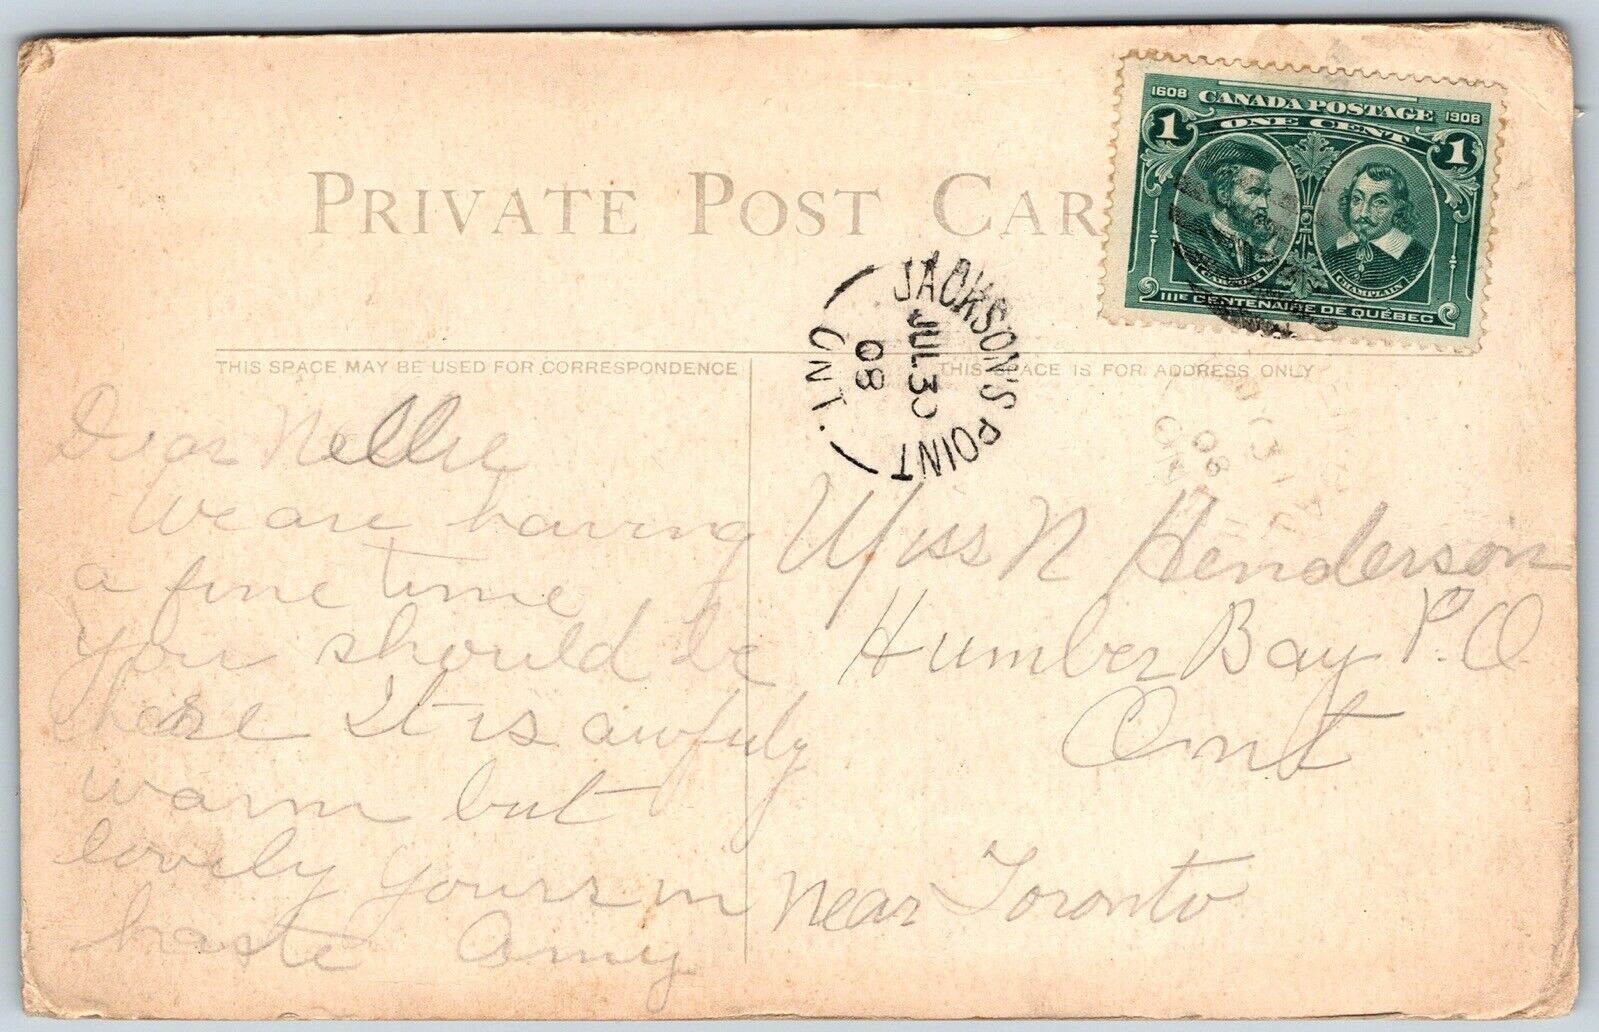 PRIVATE POST CAR
1608 CANADA POSTAGE 1908
1 ONE CENT 1
CHAMPLAIN
IIIE CENTENAIRE DE QUÉBEC
JACKSON'S POINT
JUL 30
08
ONT.
THIS SPACE MAY BE USED FOR CORRESPONDENCE
THIS SPACE IS FOR ADDRESS ONLY
Dear Nellie
We are having
a fine time
you should be
here It is awfuly
warm but
lovely Yours in
haste Amy
Miss N Henderson
Humber Bay P.O.
Ont
near Toronto
08